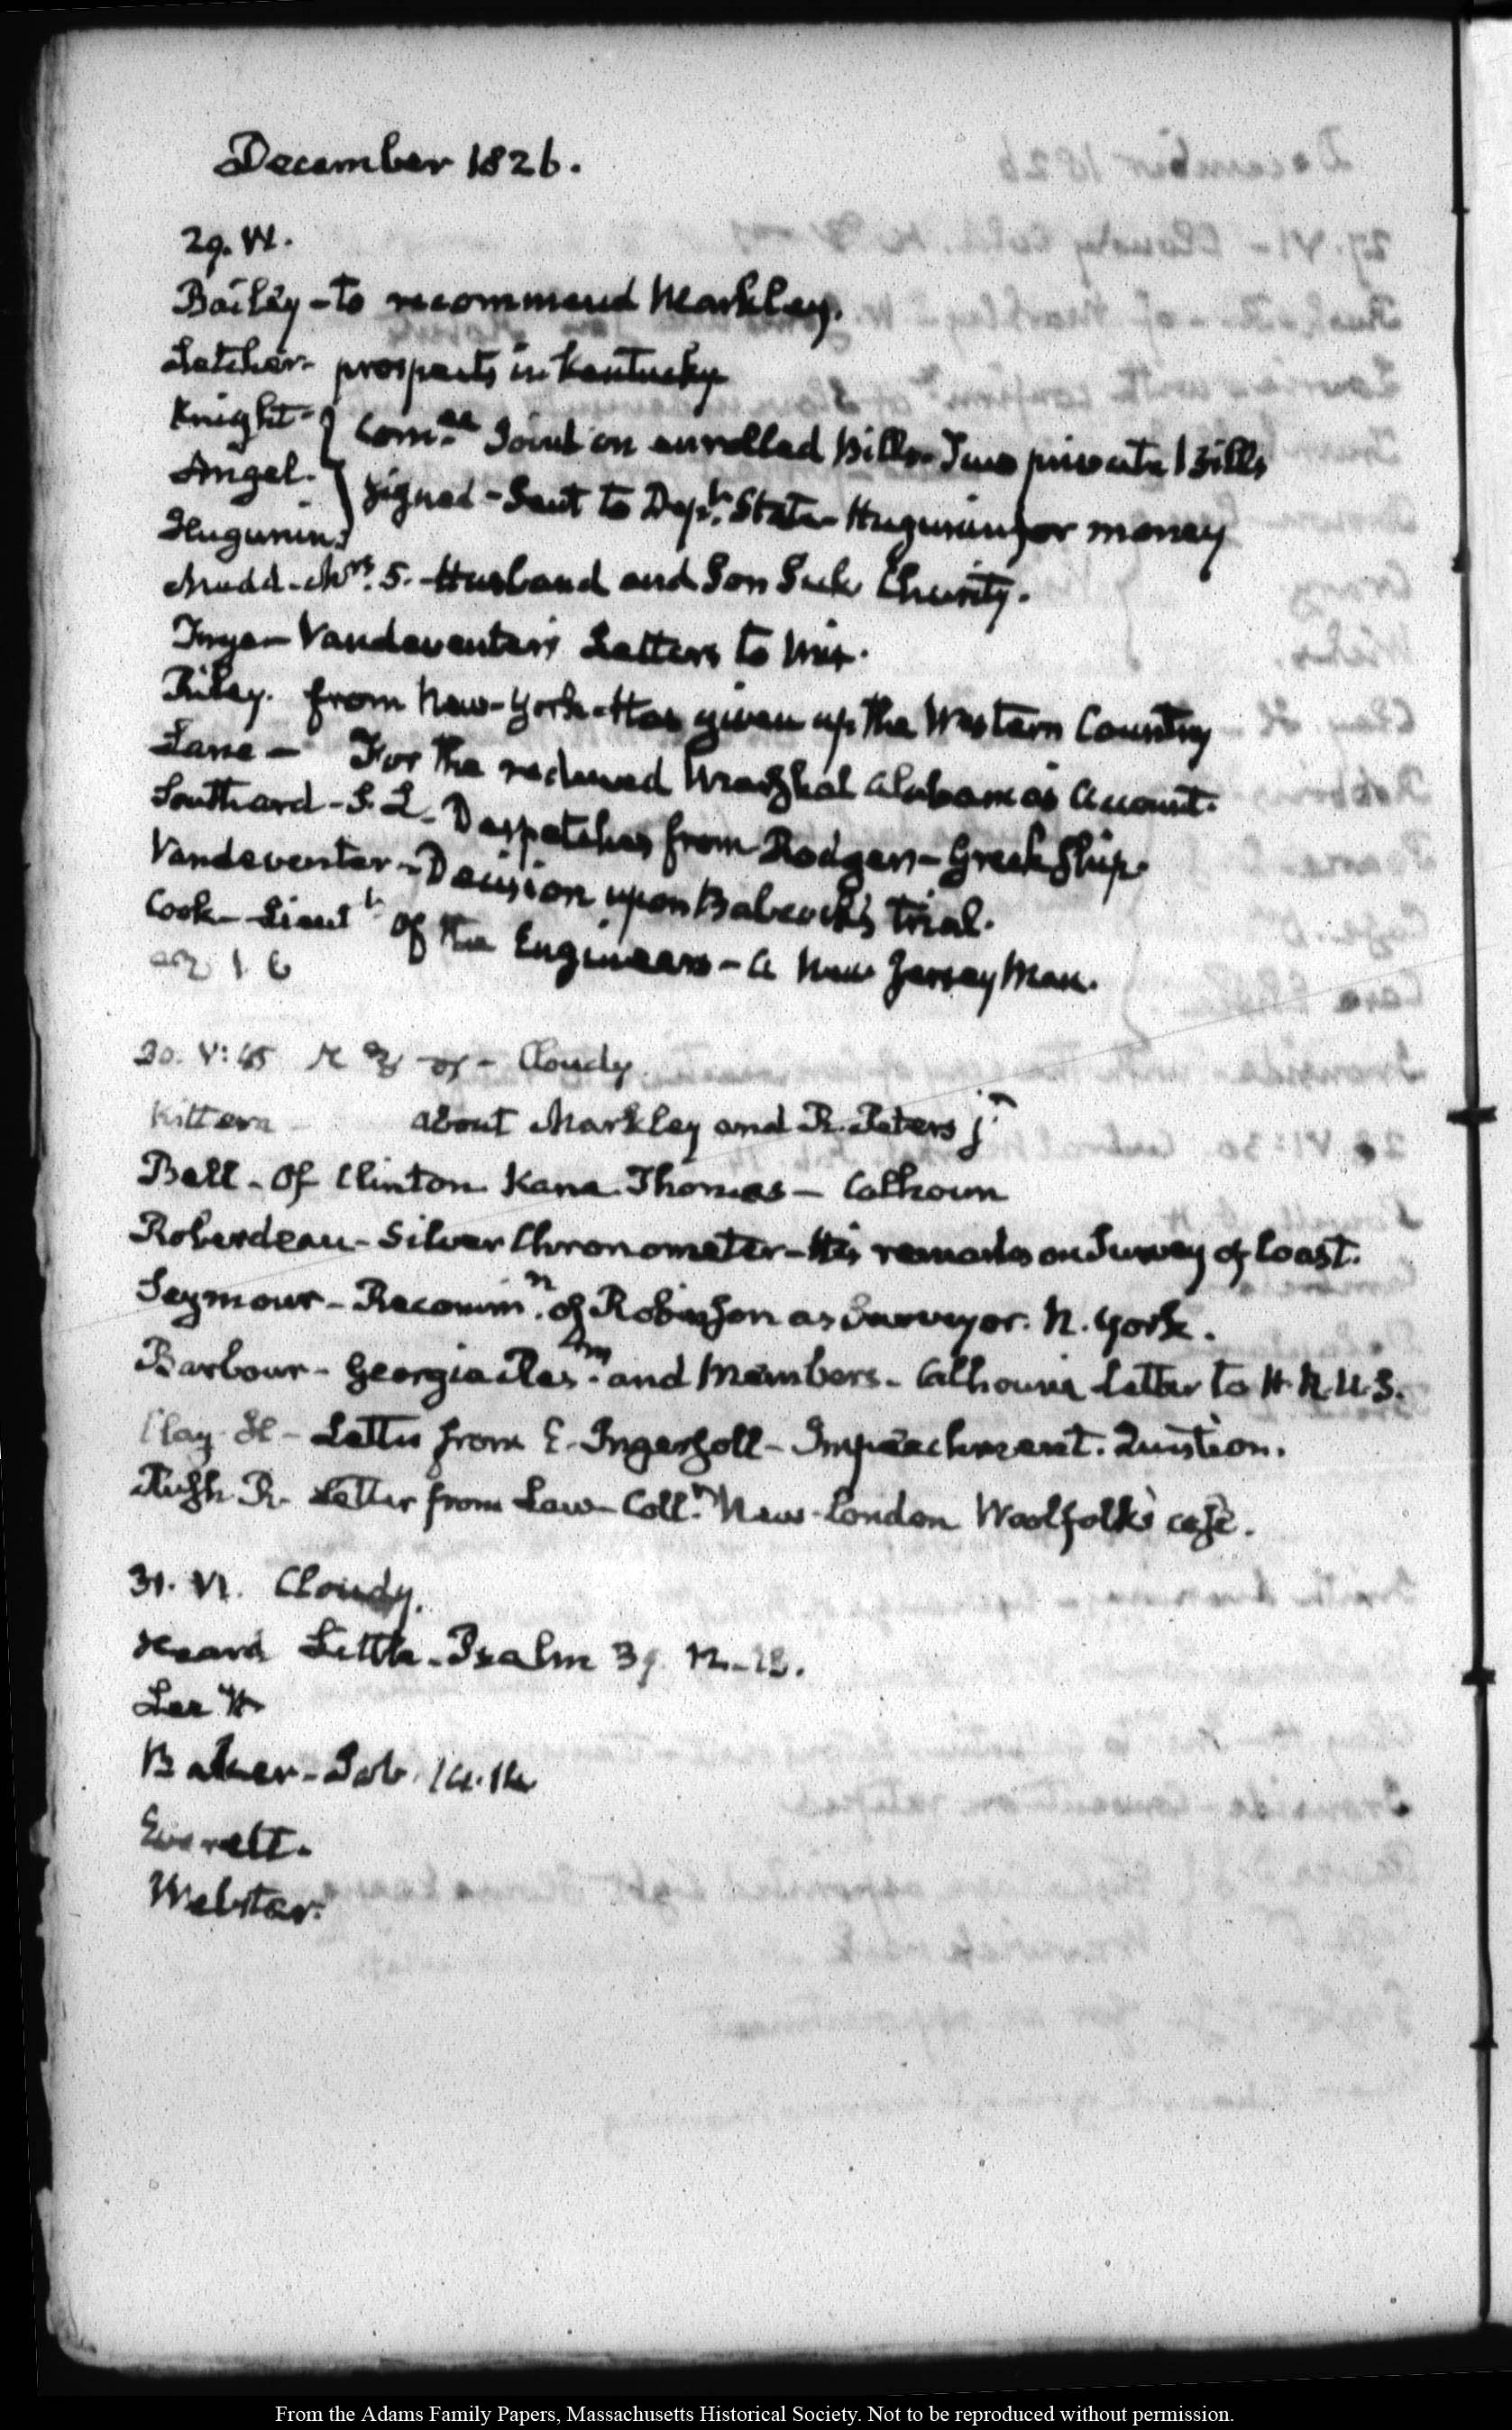 December 1826.
29. VI.
Bailey - to recommend Markley.
Letcher - prospects in Kentucky
Knight } Com.ee Joint on enrolled Bills - Two private Bills
Angel. } signed - Sent to Dep.t State - Hugunin for money
Hugunin }
Mudd - Mrs. S. - Husband and Son Sick Charity.
Vandeventer's Letters to him.
Riley. from New-York - Has given up the Western Country
Lane - For the reduced Marshal Alabama's Account.
Southard - S. L. Despatches from Rodgers - Greek Ship.
Vandeventer - Decision upon Babcock's trial.
Cook - Lieut.t of the Engineers - A New Jersey Man.
30. V:45 - Cloudy
Kittera - about Markley and R. Peters jr
Ball - Of Clinton Kane Thomas - Calhoun
Roberdeau - Silver Chronometer - His remarks on Survey of Coast.
Seymour - Recomm.n of Robinson as Surveyor. N. York.
Barbour - Georgia and Members - Calhoun's Letter to H. R. U.S.
Clay H - Letter from E. Ingersoll - Impeachment. Question.
Rush R. Letter from Law - Coll.r New-London Woolfolk's case.
31. VI. Cloudy.
Heard Little - Psalm 39. 12-13.
Lee
Baker - Job. 14.14
Everett.
Webster.
From the Adams Family Papers, Massachusetts Historical Society. Not to be reproduced without permission.